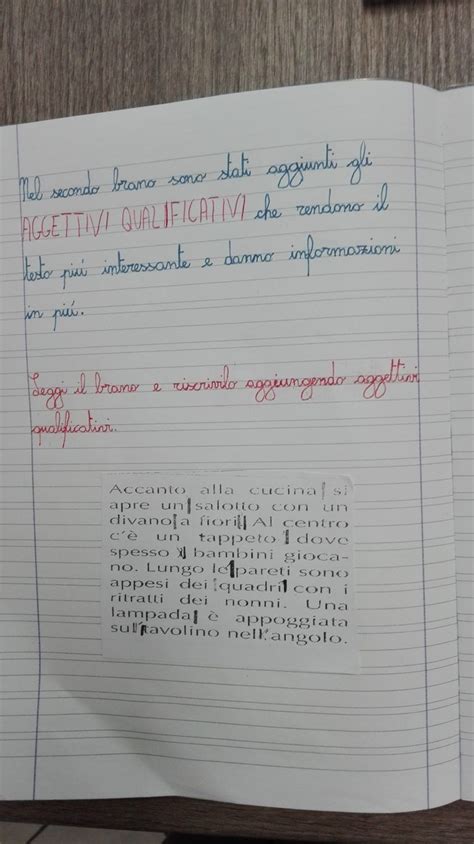 Nel secondo brano sono stati aggiunti gli
AGGETTIVI QUALIFICATIVI che rendono il
testo piú interessante e danno informazioni
in piú.
Leggi il brano e riscrivilo aggiungendo aggettivi
qualificativi.
Accanto alla cucina si
apre un salotto con un
divano a fiori. Al centro
c'è un tappeto dove
spesso i bambini gioca-
no. Lungo le pareti sono
appesi dei quadri con i
ritratti dei nonni. Una
lampada è appoggiata
sul tavolino nell'angolo.